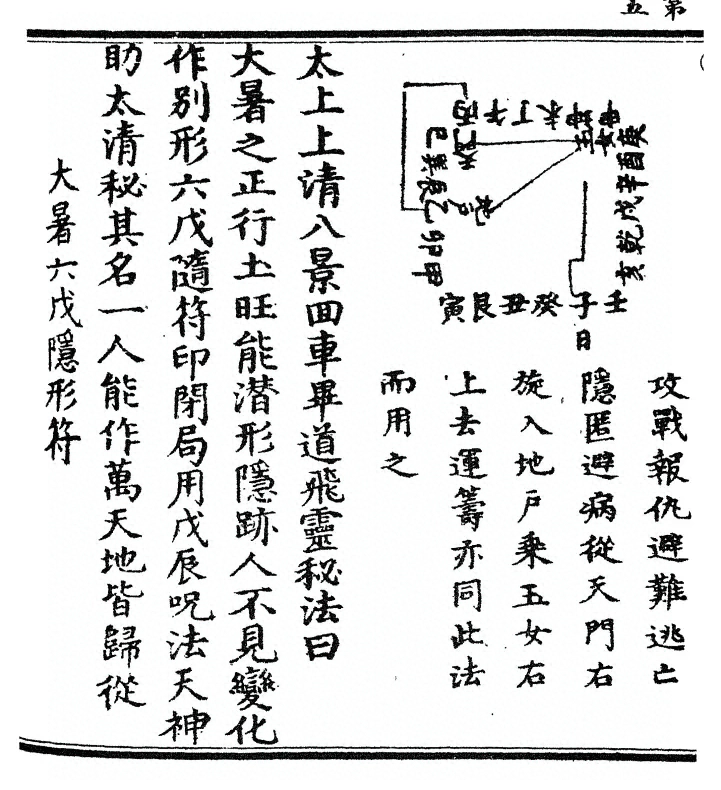 第
五
壬子癸丑艮寅
甲卯乙辰巽巳
丙午丁未坤申
庚酉辛戌乾亥
玉女
地户
日
攻戰報仇避難逃亡
隱匿避病從天門右
旋入地户乘玉女右
上去運籌亦同此法
而用之
太上上清八景回車畢道飛靈秘法曰
大暑之正行土旺能潜形隱跡人不見變化
作别形六戊隨符印閉局用戊辰呪法天神
助太清秘其名一人能作萬天地皆歸從
大暑六戊隱形符